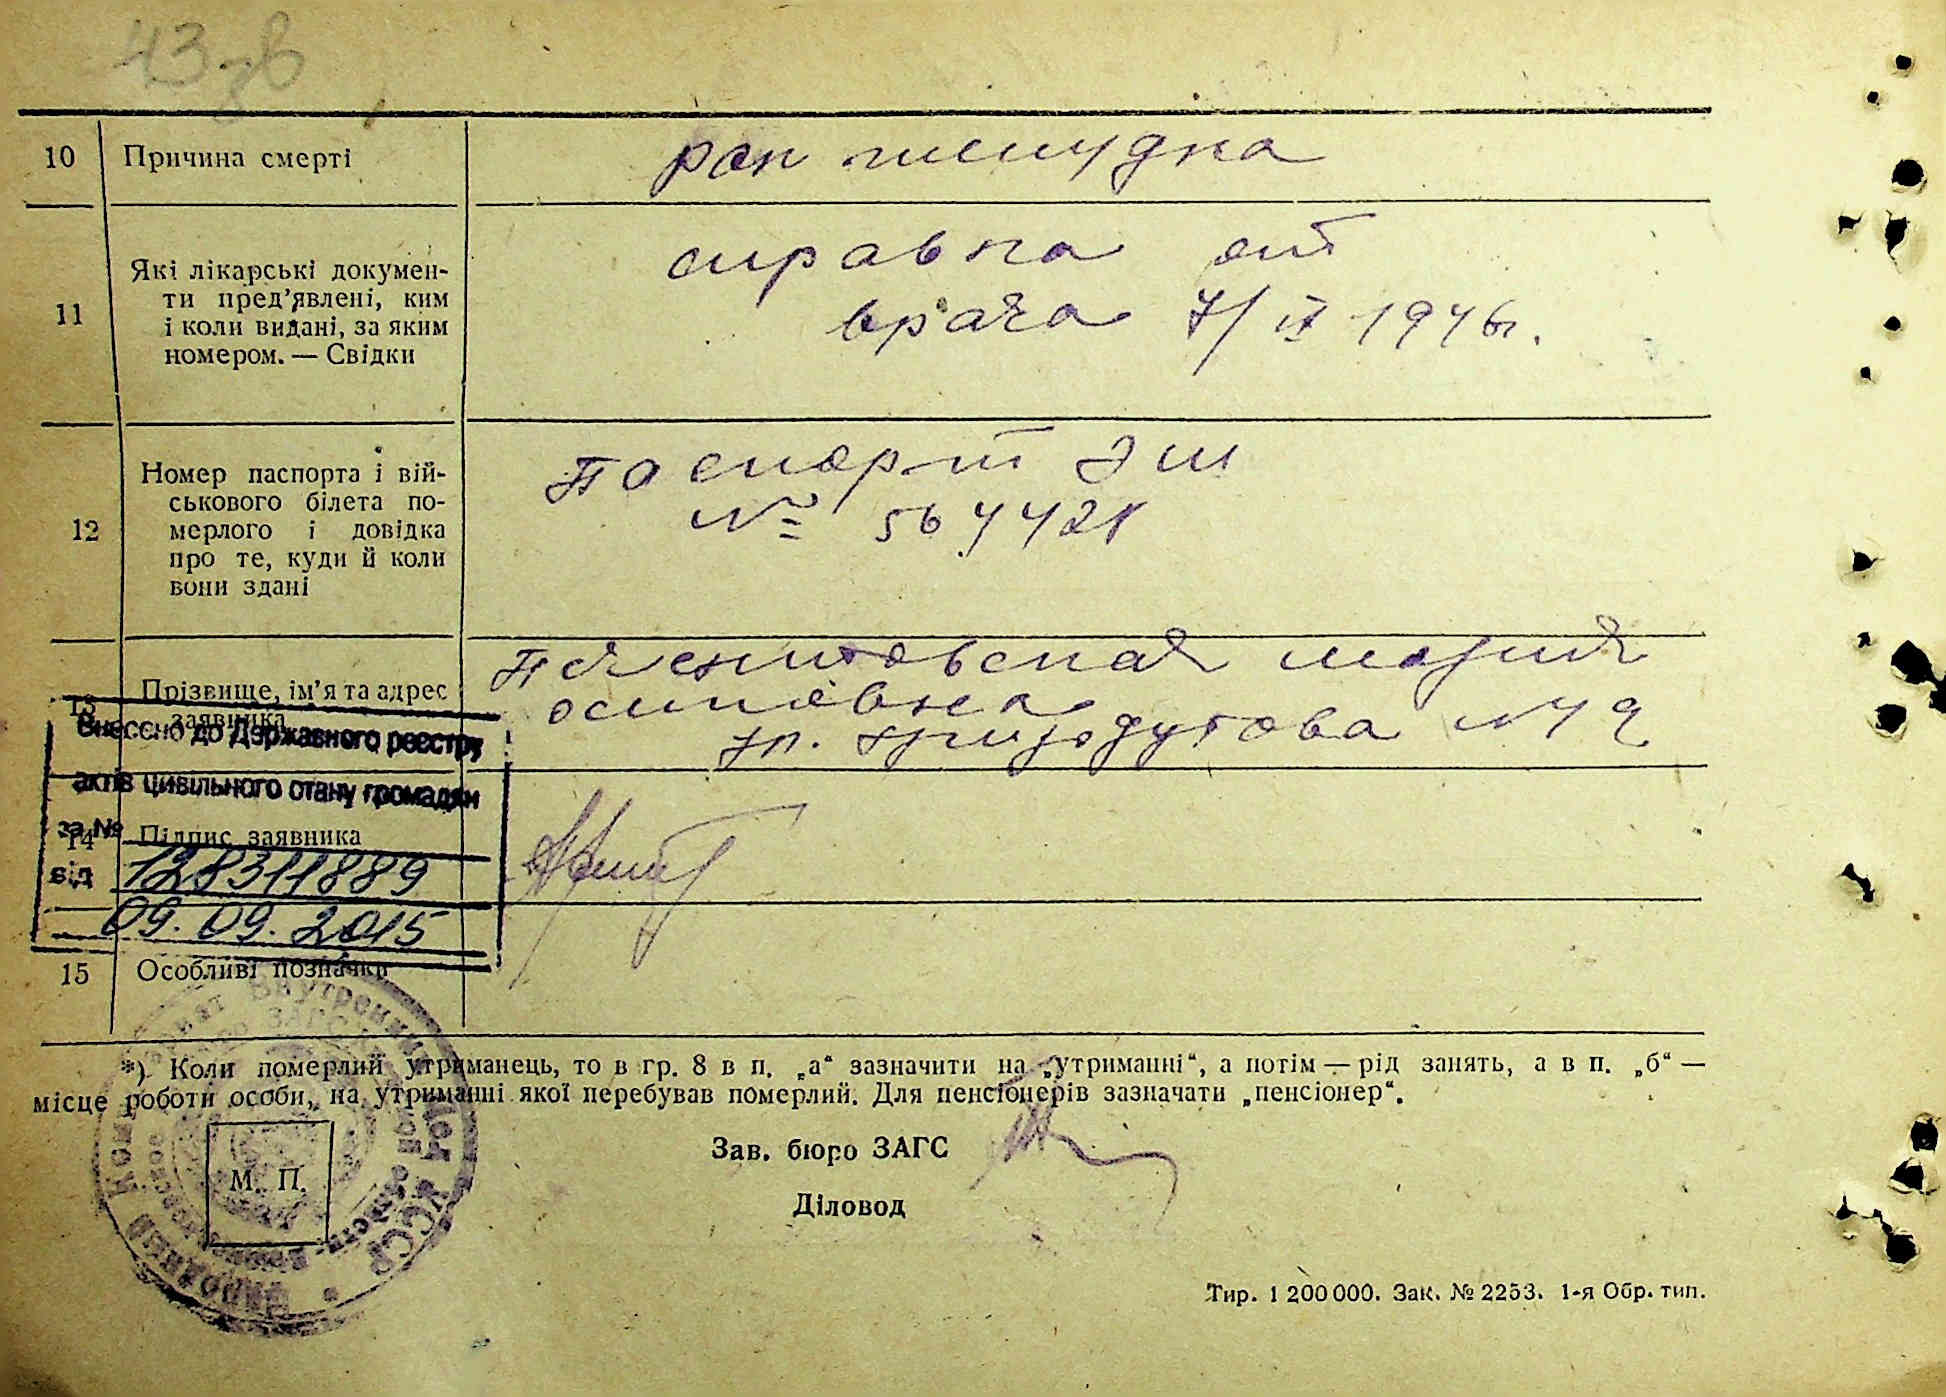 43 зв
10 Причина смерті
рак желудка
11 Які лікарські докумен-
ти пред’явлені, ким
і коли видані, за яким
номером. — Свідки
справка от
врача 7/IX 1946г.
12 Номер паспорта і вій-
ськового білета по-
мерлого і довідка
про те, куди й коли
вони здані
Паспорт ЭШ
№
13 Прізвище, ім’я та адрес
заявника
мария
осиповна
№
Внесено до Державного реєстру
актів цивільного стану громадян
за №
14 Підпис заявника
від 128311889
09.09.2015
15 Особливі позначки
*) Коли померлий утриманець, то в гр. 8 в п. „а“ зазначити на „утриманні“, а потім — рід занять, а в п. „б“ —
місце роботи особи, на утриманні якої перебував померлий. Для пенсіонерів зазначати „пенсіонер“.
Зав. бюро ЗАГС
М. П.
Діловод
Тир. 1 200 000. Зак. № 2253. 1-я Обр. тип.